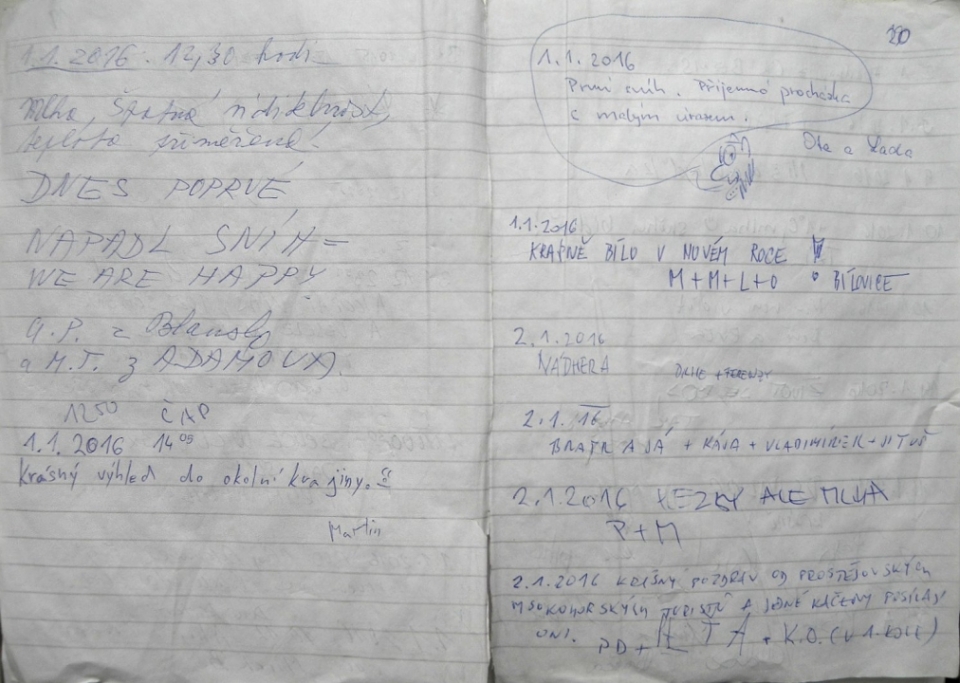 1.1.2016. 12,30 hodi
Mlha, špatná viditelnost,
teplota přiměřená.
DNES POPRVÉ
NAPADL SNÍH =
WE ARE HAPPY
G.P. z Blanska
a M.T. z ADAMOVA.
12⁵⁰ ČAP
1.1.2016 14⁰⁹
Krásný výhled do okolní krajiny.
Martin
20
1.1.2016
První sníh. Příjemná procházka
s malým úrazem.
Ola a Lada
1.1.2016
KRÁSNĚ BÍLO V NOVÉM ROCE
M+M+L+O BÍLOVICE
2.1.2016
NÁDHERA
2.1.16
BRATR A JÁ + KÁVA +
2.1.2016 HEZKY ALE MLHA
P+M
2.1.2016 KRÁSNÝ POZDRAV OD PROSTĚJOVSKÝCH
TURISTŮ A JEDNÉ KAČENY POSÍLAJÍ
ONI.
PD + K.O. (V 1.